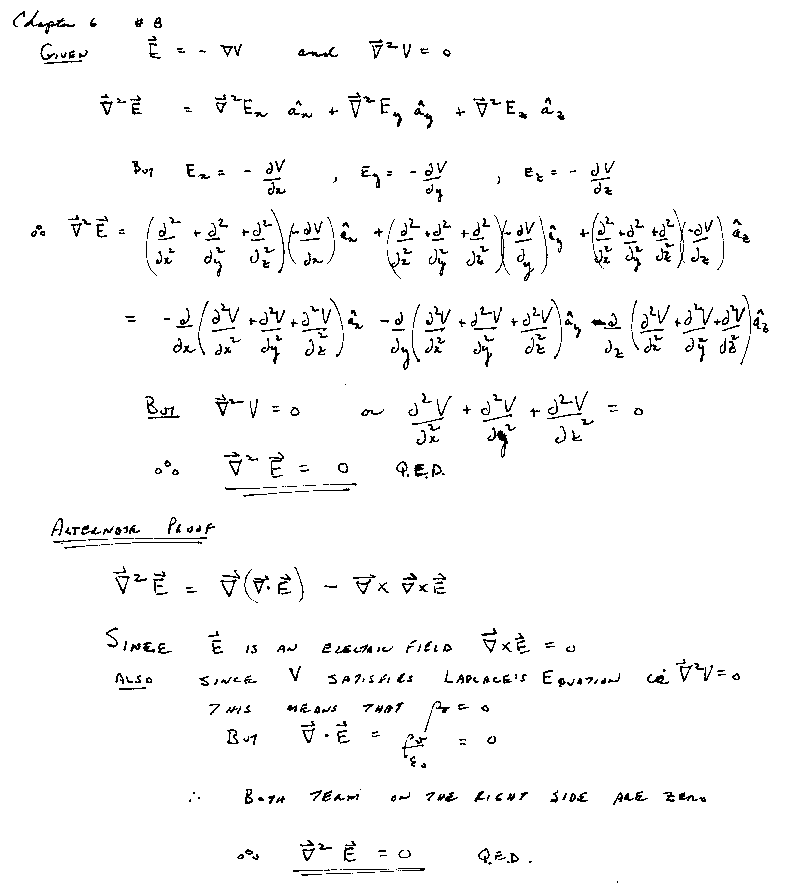 Chapter 6 # 8
GIVEN E⃗ = - ∇V and ∇⃗²V = 0
∇⃗²E⃗ = ∇⃗²Eₓ âₓ + ∇⃗²E_y â_y + ∇⃗²E_z â_z
BUT Eₓ = - ∂V/∂x , E_y = - ∂V/∂y , E_z = - ∂V/∂z
∴ ∇⃗²E⃗ = (∂²/∂x² + ∂²/∂y² + ∂²/∂z²)(-∂V/∂x) âₓ + (∂²/∂x² + ∂²/∂y² + ∂²/∂z²)(-∂V/∂y) â_y + (∂²/∂x² + ∂²/∂y² + ∂²/∂z²)(-∂V/∂z) â_z
= -∂/∂x (∂²V/∂x² + ∂²V/∂y² + ∂²V/∂z²) âₓ - ∂/∂y (∂²V/∂x² + ∂²V/∂y² + ∂²V/∂z²) â_y - ∂/∂z (∂²V/∂x² + ∂²V/∂y² + ∂²V/∂z²) â_z
BUT ∇⃗²V = 0 or ∂²V/∂x² + ∂²V/∂y² + ∂²V/∂z² = 0
∴ ∇⃗²E⃗ = 0 Q.E.D.
ALTERNATE PROOF
∇⃗²E⃗ = ∇⃗(∇⃗·E⃗) - ∇⃗× ∇⃗×E⃗
SINCE E⃗ IS AN ELECTRIC FIELD ∇⃗×E⃗ = 0
ALSO SINCE V SATISFIES LAPLACE'S EQUATION ie ∇⃗²V = 0
THIS MEANS THAT ρᵥ = 0
BUT ∇⃗·E⃗ = ρᵥ/ε₀ = 0
∴ BOTH TERM ON THE RIGHT SIDE ARE ZERO
∴ ∇⃗²E⃗ = 0 Q.E.D.